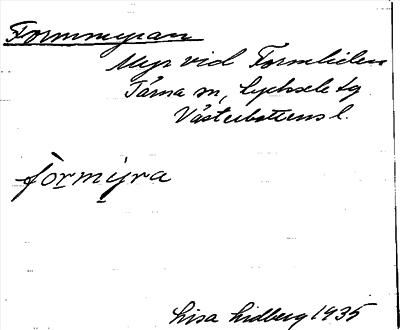 Formmyran
Myr vid Formliden
Tärna sn, Lycksele lg
Västerbottens l.
formyra
Lisa Lidberg 1935